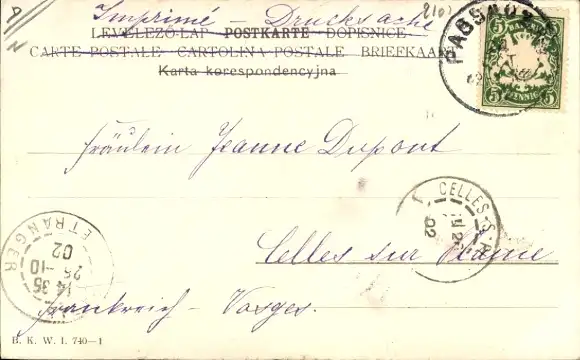 Imprimé - Drucksache
LEVELEZŐ-LAP POSTKARTE DOPISNICE
CARTE POSTALE CARTOLINA POSTALE BRIEFKAART
Karta korespondencyjna
PASSAU
5 5
PFENNIG
Fräulein Jeanne Dupont
CELLES-S-P
02
Celles sur Plaine
ETRANGER
14 35
26 -10
02
Frankreich - Vosges.
B. K. W. I. 740-1